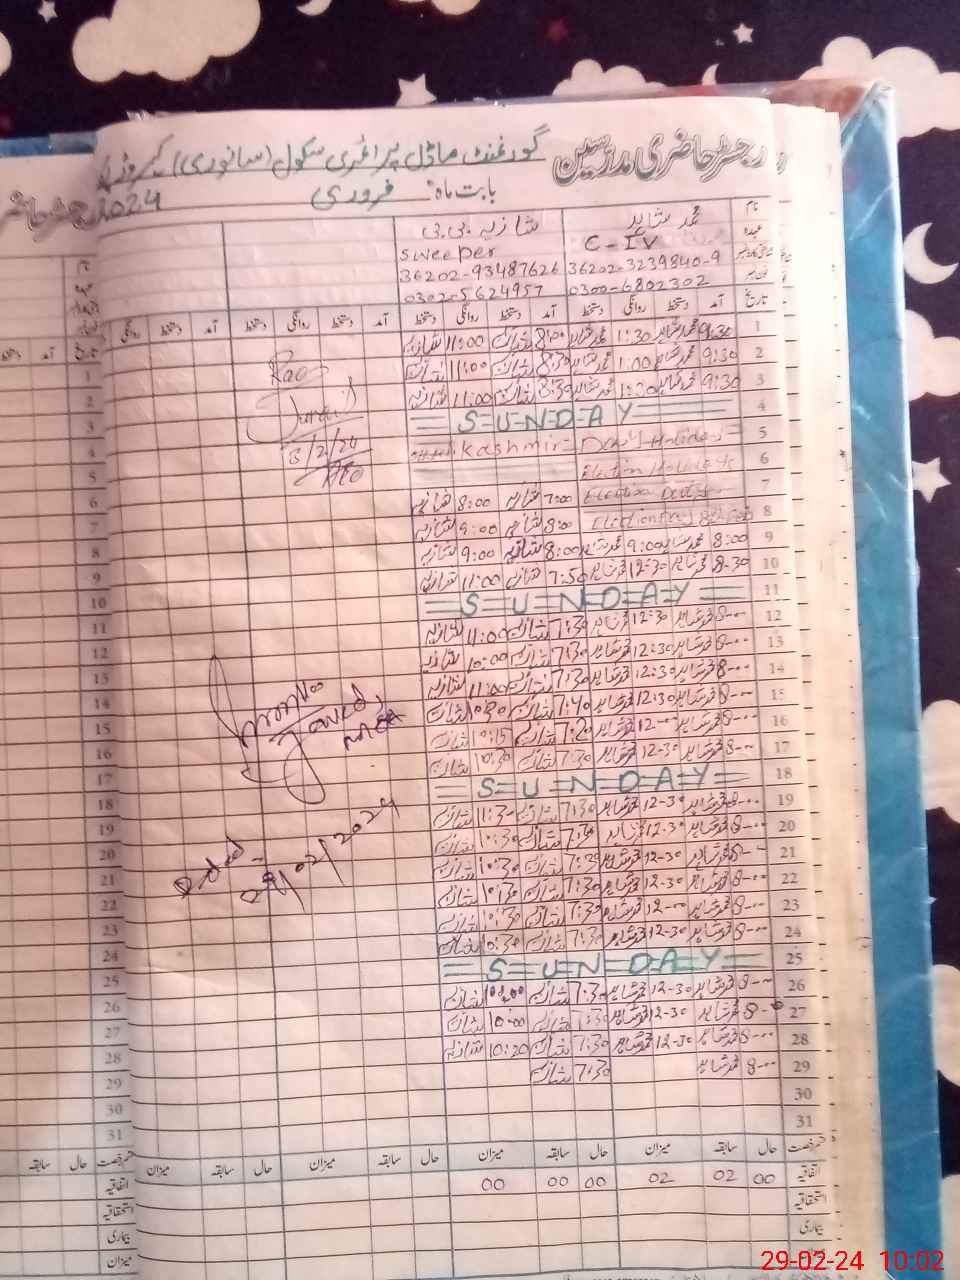 رجسٹر حاضری مدرسین گورنمنٹ ماڈل پرائمری سکول (سانوری)
بابت ماہ فروری 2024
نام محمد شاہد شازیہ بی بی
عہدہ C-IV Sweeper
36202-3239840-9 36202-93487626
0300-6802302 0302-5624957
تاریخ آمد دستخط روانگی دستخط آمد دستخط روانگی دستخط آمد دستخط روانگی دستخط آمد دستخط روانگی
1 9:30 محمد شاہد 1:30 محمد شاہد 8:00 شازیہ 11:00 شازیہ
2 9:30 محمد شاہد 1:00 محمد شاہد 8:30 شازیہ 11:00 شازیہ
3 9:30 محمد شاہد 1:30 محمد شاہد 8:30 شازیہ 11:00 شازیہ
4 SUNDAY
5 Kashmir Day Holiday
6 Election Holidays
7 Election Duty 7:00 شازیہ 8:00 شازیہ
8 Election 8:00 شازیہ 9:00 شازیہ
9 8:00 محمد شاہد 9:00 محمد شاہد 8:00 شازیہ 9:00 شازیہ
10 8-30 محمد شاہد 12:30 محمد شاہد 7:50 شازیہ 11:00 شازیہ
11 SUNDAY
12 8-00 محمد شاہد 12:30 محمد شاہد 7:30 شازیہ 11:00 شازیہ
13 8-00 محمد شاہد 12:30 محمد شاہد 7:30 شازیہ 10:00 شازیہ
14 8-00 محمد شاہد 12:30 محمد شاہد 7:30 شازیہ 11:00 شازیہ
15 8-00 محمد شاہد 12:30 محمد شاہد 7:40 شازیہ 10:30 شازیہ
16 8-00 محمد شاہد 12-00 محمد شاہد 7:20 شازیہ 10:15 شازیہ
17 8-00 محمد شاہد 12-30 محمد شاہد 7:30 شازیہ 10:30 شازیہ
18 SUNDAY
19 8-00 محمد شاہد 12-30 محمد شاہد 7:30 شازیہ 11:30 شازیہ
20 8-00 محمد شاہد 12-30 محمد شاہد 7:30 شازیہ 10:30 شازیہ
21 8-00 محمد شاہد 12-30 محمد شاہد 7:30 شازیہ 10:30 شازیہ
22 8-00 محمد شاہد 12-30 محمد شاہد 7:30 شازیہ 10:30 شازیہ
23 8-00 محمد شاہد 12-00 محمد شاہد 7:30 شازیہ 10:30 شازیہ
24 8-00 محمد شاہد 12-30 محمد شاہد 7:30 شازیہ 10:30 شازیہ
25 SUNDAY
26 8-00 محمد شاہد 12-30 محمد شاہد 7:30 شازیہ 10:00 شازیہ
27 8-00 محمد شاہد 12-30 محمد شاہد 7:30 شازیہ 10:00 شازیہ
28 8-00 محمد شاہد 12-30 محمد شاہد 7:30 شازیہ 10:20 شازیہ
29 8-00 محمد شاہد 7:30 شازیہ
30
31
حال سابقہ میزان حال سابقہ میزان حال سابقہ میزان حال سابقہ میزان
اتفاقیہ 00 02 02 00 00 00
استحقاقیہ
بیماری
میزان
Rao
Junaid
3/2/24
AEO
Javed
Dated
29/02/2024
29-02-24 10:02